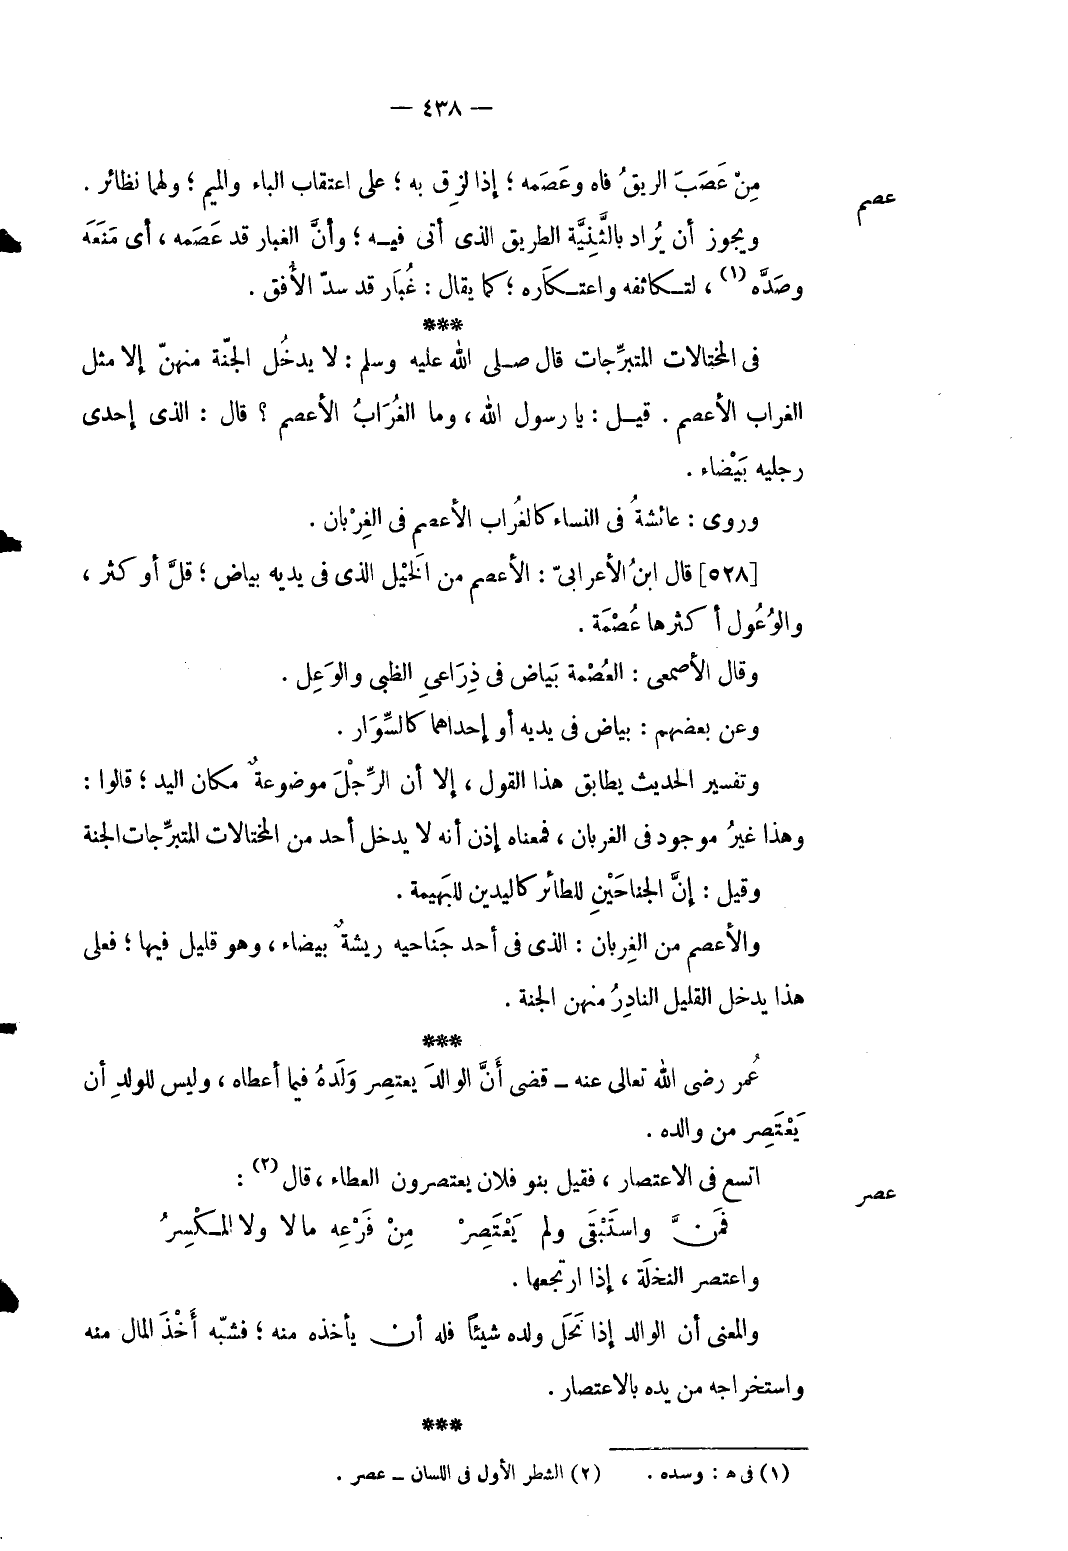 — ٤٣٨ —
مِنْ عَصَبَ الريقُ فاه وعَصَمه ؛ إذا لزِق به ؛ على اعتقاب الباء والميم ؛ ولهما نظائر .
عصم
ويجوز أن يُراد بالثَّنِيَّة الطريق الذى أتى فيه ؛ وأنَّ الغبار قد عَصَمه ، أى مَنَعَه
وصَدَّه (١) ، لتكاثفه واعتكَاره ؛ كما يقال : غُبَار قد سدّ الأُفق .
***
فى المختالات المتبرِّجات قال صلى الله عليه وسلم : لا يدخُل الجنّة منهنّ إلا مثل
الغراب الأعصم . قيل : يا رسول الله ، وما الغُرَابُ الأعصم ؟ قال : الذى إحدى
رجليه بَيْضاء .
وروى : عائشةُ فى النساء كالغُراب الأعصم فى الغِرْبان .
[٥٢٨] قال ابنُ الأعرابىّ : الأعصم من الخَيْل الذى فى يديه بياض ؛ قلَّ أو كثر ،
والوُعُول أكثرها عُصْمَة .
وقال الأصمعى : العُصْمة بَياض فى ذِرَاعىِ الظبى والوَعِل .
وعن بعضهم : بياض فى يديه أو إحداهما كالسِّوَار .
وتفسير الحديث يطابق هذا القول ، إلا أن الرِّجْلَ موضوعةٌ مكان اليد ؛ قالوا :
وهذا غيرُ موجود فى الغربان ، فمعناه إذن أنه لا يدخل أحد من المختالات المتبرِّجات الجنة
وقيل : إنَّ الجناحَيْنِ للطائر كاليدين للبَهيمة .
والأعصم من الغِربان : الذى فى أحد جَناحيه ريشةٌ بيضاء ، وهو قليل فيها ؛ فعلى
هذا يدخل القليل النادِرُ منهن الجنة .
***
عُمر رضى الله تعالى عنه – قضى أَنَّ الوالدَ يعتصِر وَلَدهُ فيما أعطاه ، وليس للولدِ أن
يَعْتَصِر من والده .
اتسع فى الاعتصار ، فقيل بنو فلان يعتصرون العطاء ، قال (٢) :
عصر
فَمَنَّ واستَبْقَى ولم يَعْتَصِرْ مِنْ فَرْعِه مالا ولا المكْسِرُ
واعتصر النخلَة ، إذا ارتجعها .
والمعنى أن الوالد إذا نَحَل ولده شيئاً فله أن يأخذه منه ؛ فشبّه أَخْذَ المال منه
واستخراجه من يده بالاعتصار .
***
(١) فى ه : وسده . (٢) الشطر الأول فى اللسان – عصر .